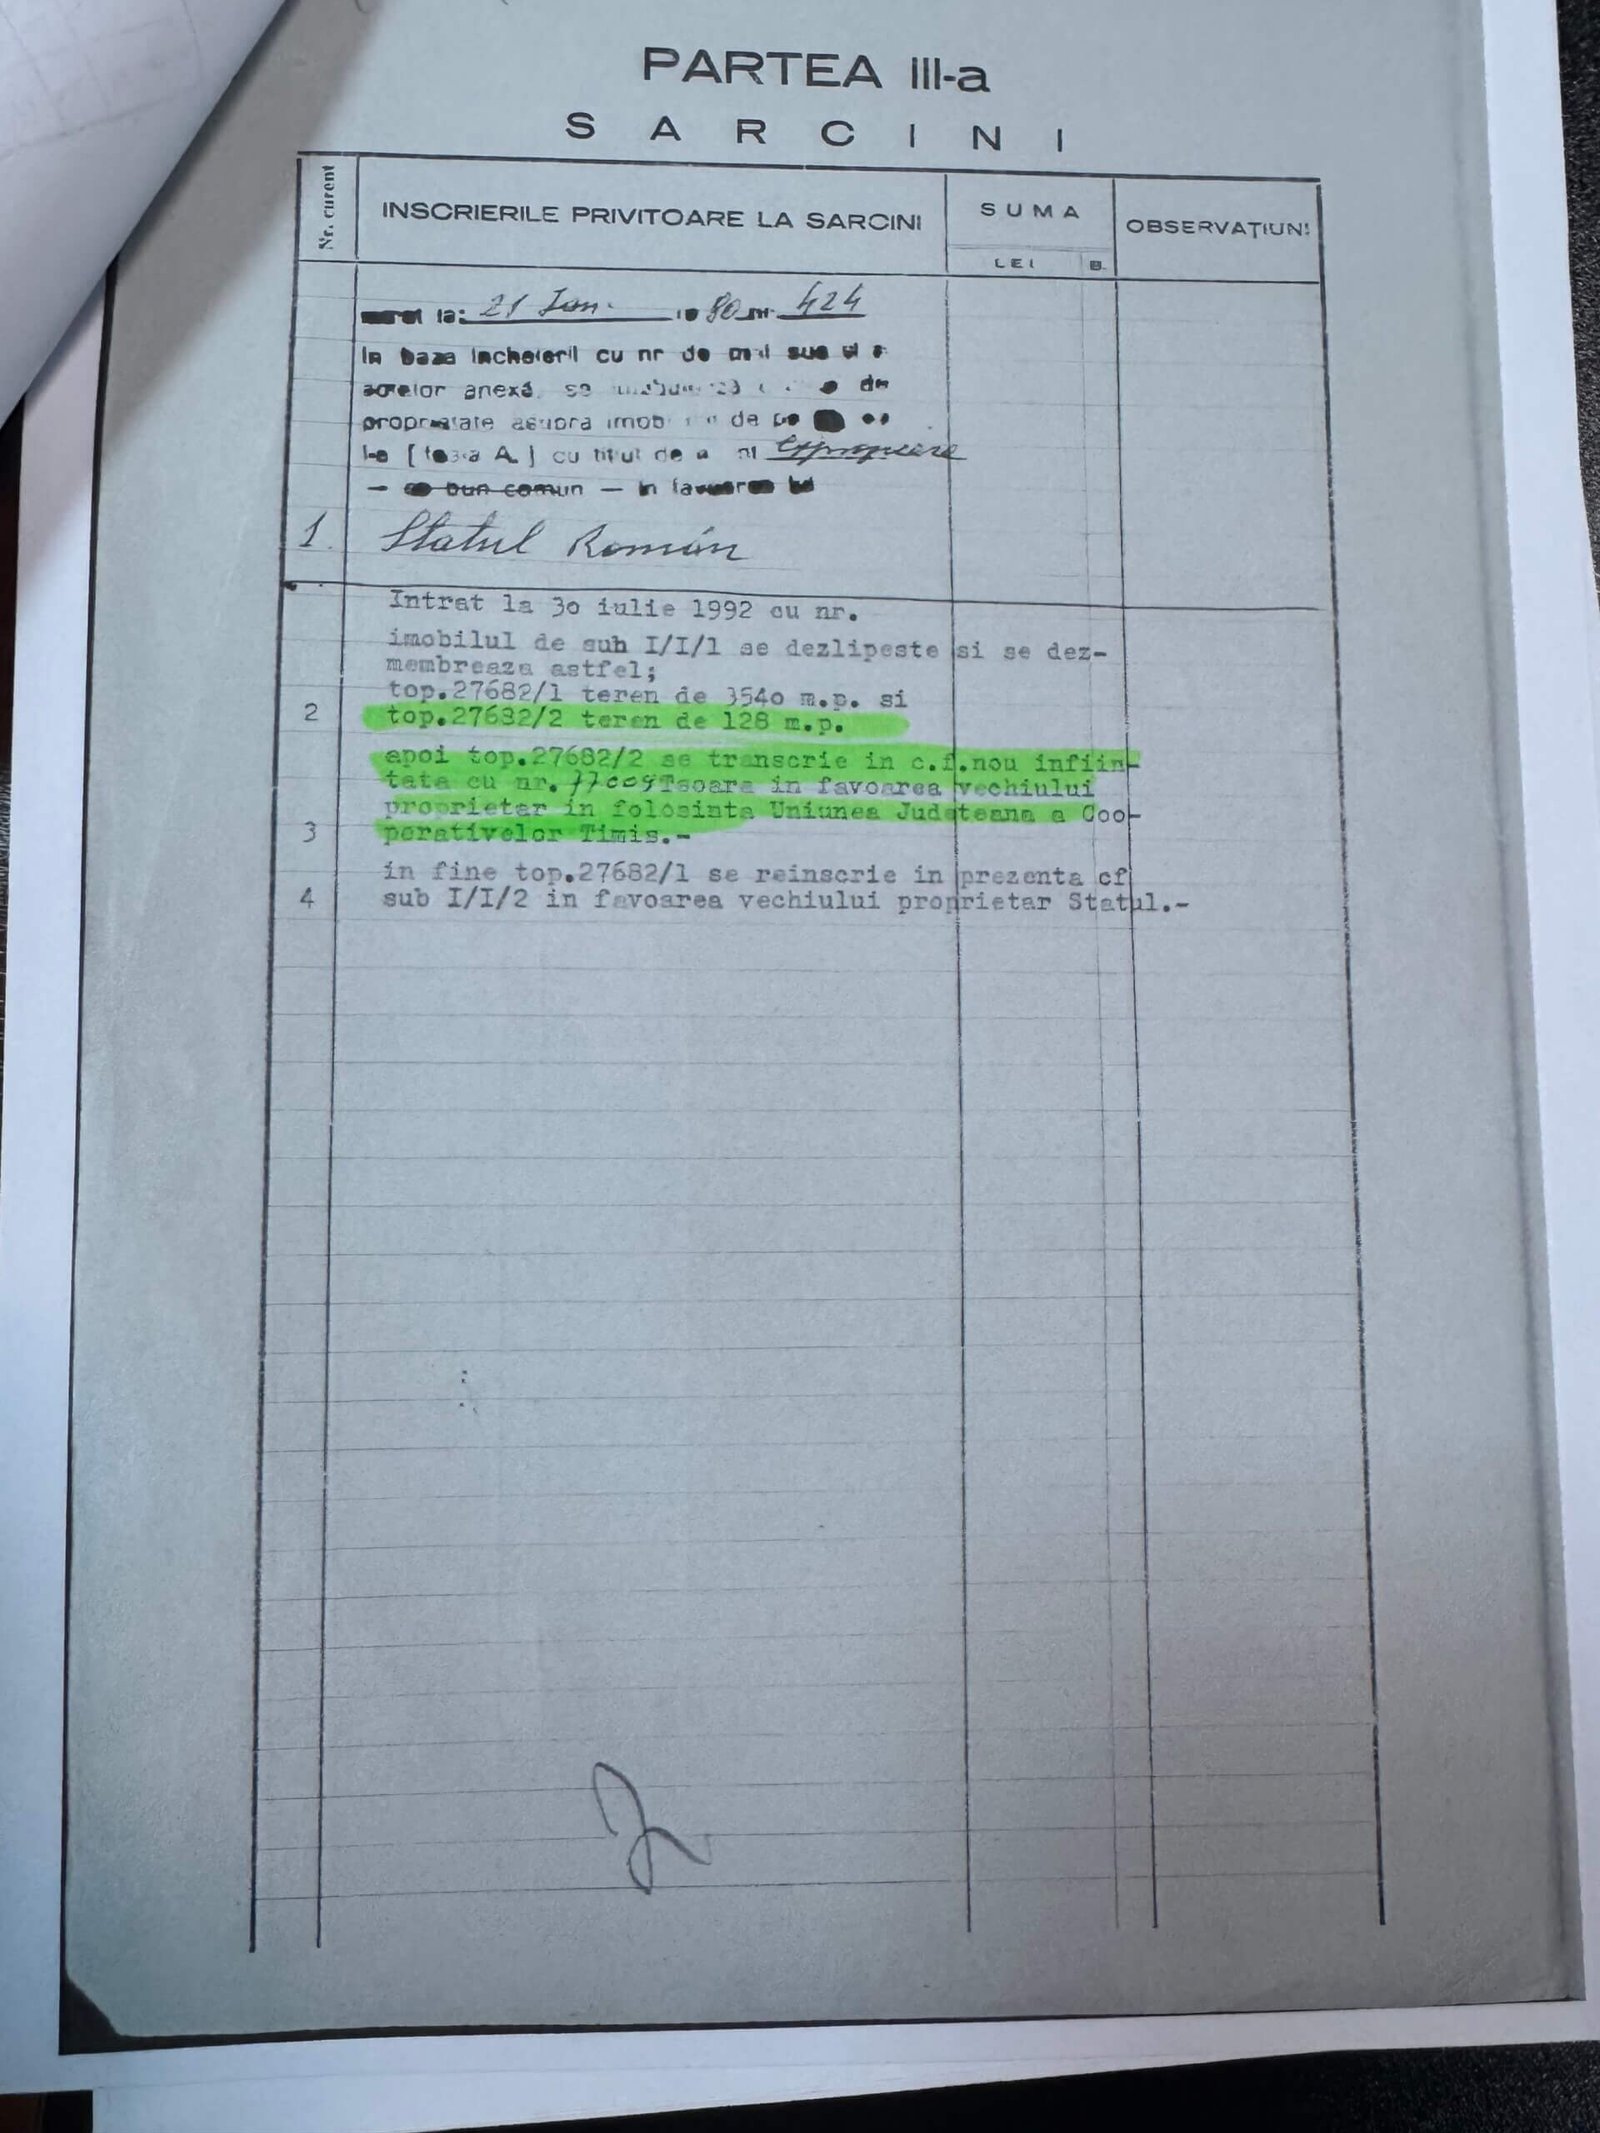 PARTEA III-a
SARCINI
Nr. curent
INSCRIERILE PRIVITOARE LA SARCINI
SUMA
OBSERVAȚIUNI
LEI
B.
la: 21 Ian. 1980 nr. 424
In baza incheierii cu nr de mai sus si a
actelor anexă, se de
proprietate asupra imob de
I-a [foaia A.] cu titlul de Expropiere
— bun comun — in favoarea lui
1. Statul Román
Intrat la 3o iulie 1992 cu nr.
imobilul de sub I/I/1 se dezlipeste si se dez-
membreaza astfel;
top.27682/1 teren de 354o m.p. si
2 top.27682/2 teren de 128 m.p.
apoi top.27682/2 se transcrie in c.f.nou infiin-
tata cu nr. 77009 Tsoara in favoarea vechiului
proprietar in folosinta Uniunea Judeteana a Coo-
3 perativelor Timis.-
in fine top.27682/1 se reinscrie in prezenta cf
4 sub I/I/2 in favoarea vechiului proprietar Statul.-